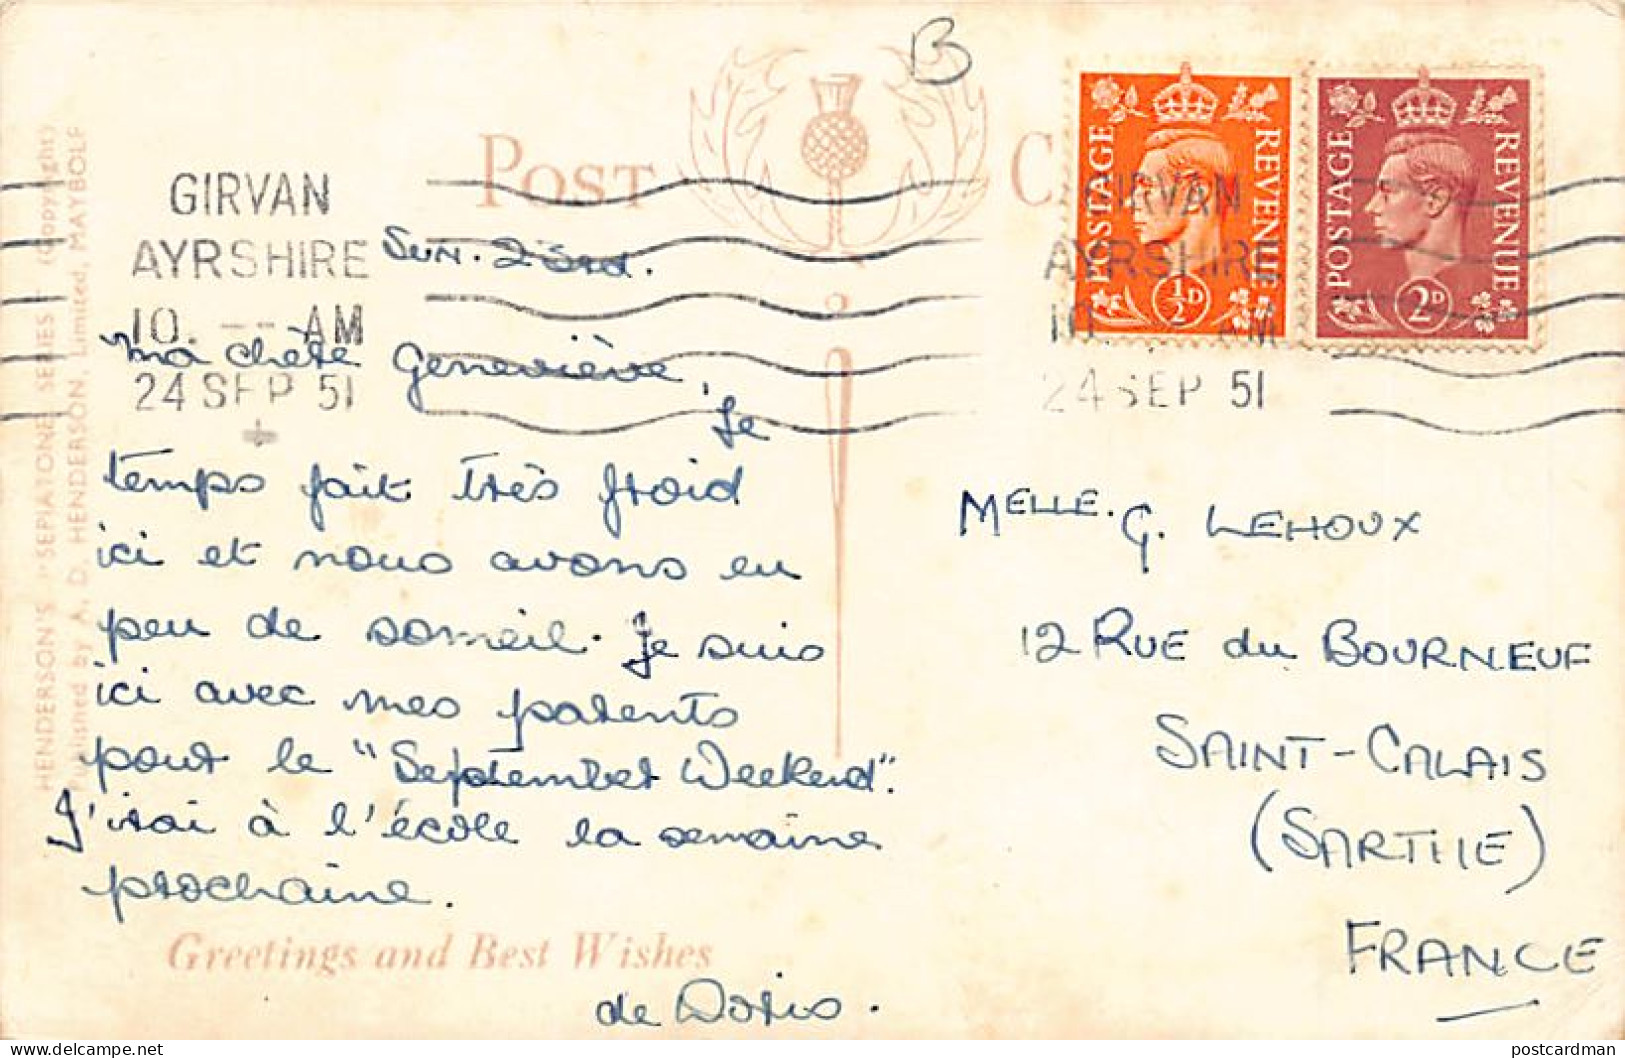 B
POST
GIRVAN
AYRSHIRE
10. -- AM
24 SEP 51
POSTAGE REVENUE
½D
POSTAGE REVENUE
2D
GIRVAN
AYRSHIRE
10. AM
24 SEP 51
HENDERSON'S "SEPIATONE SERIES" (Copyright)
Published by A. D. HENDERSON, Limited, MAYBOLE
Sun. 23rd.
Ma chère Geneviève,
Le
temps fait très froid
ici et nous avons eu
peu de someil. Je suis
ici avec mes parents
pour le "September Weekend".
J'irai à l'école la semaine
prochaine.
Greetings and Best Wishes
de Doris.
MELLE. G. LEHOUX
12 RUE du BOURNEUF
SAINT-CALAIS
(SARTHE)
FRANCE
www.delcampe.net
postcardman